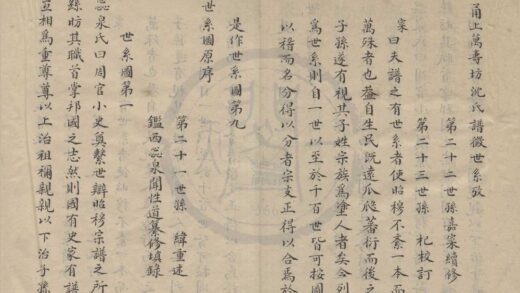 甬上萬壽坊沈氏譜徵世系攷
第二十二世孫嘉家續修
第二十三世孫 杞校訂
家曰夫譜之有世系者使昭穆不紊一本而
萬殊者也蓋自生民既遠瓜瓞蕃衍而後之
子孫遂有視其子姓宗族為塗人者矣今列
為世系則自一世以至於千百世皆可按圖
以稽而名分得以分者宗支正得以合焉於
是作世系圖第九
世系圖原序
第二十一世孫 緯重述
鑑西蕊泉聞性道纂修填錄
世系圖第一
蕊泉氏曰周官小史奠繫世辯昭穆宗譜之所
繇昉其職首掌邦國之志然則國有史家有譜
互相為重尊尊以上治祖禰親親以下治子孫